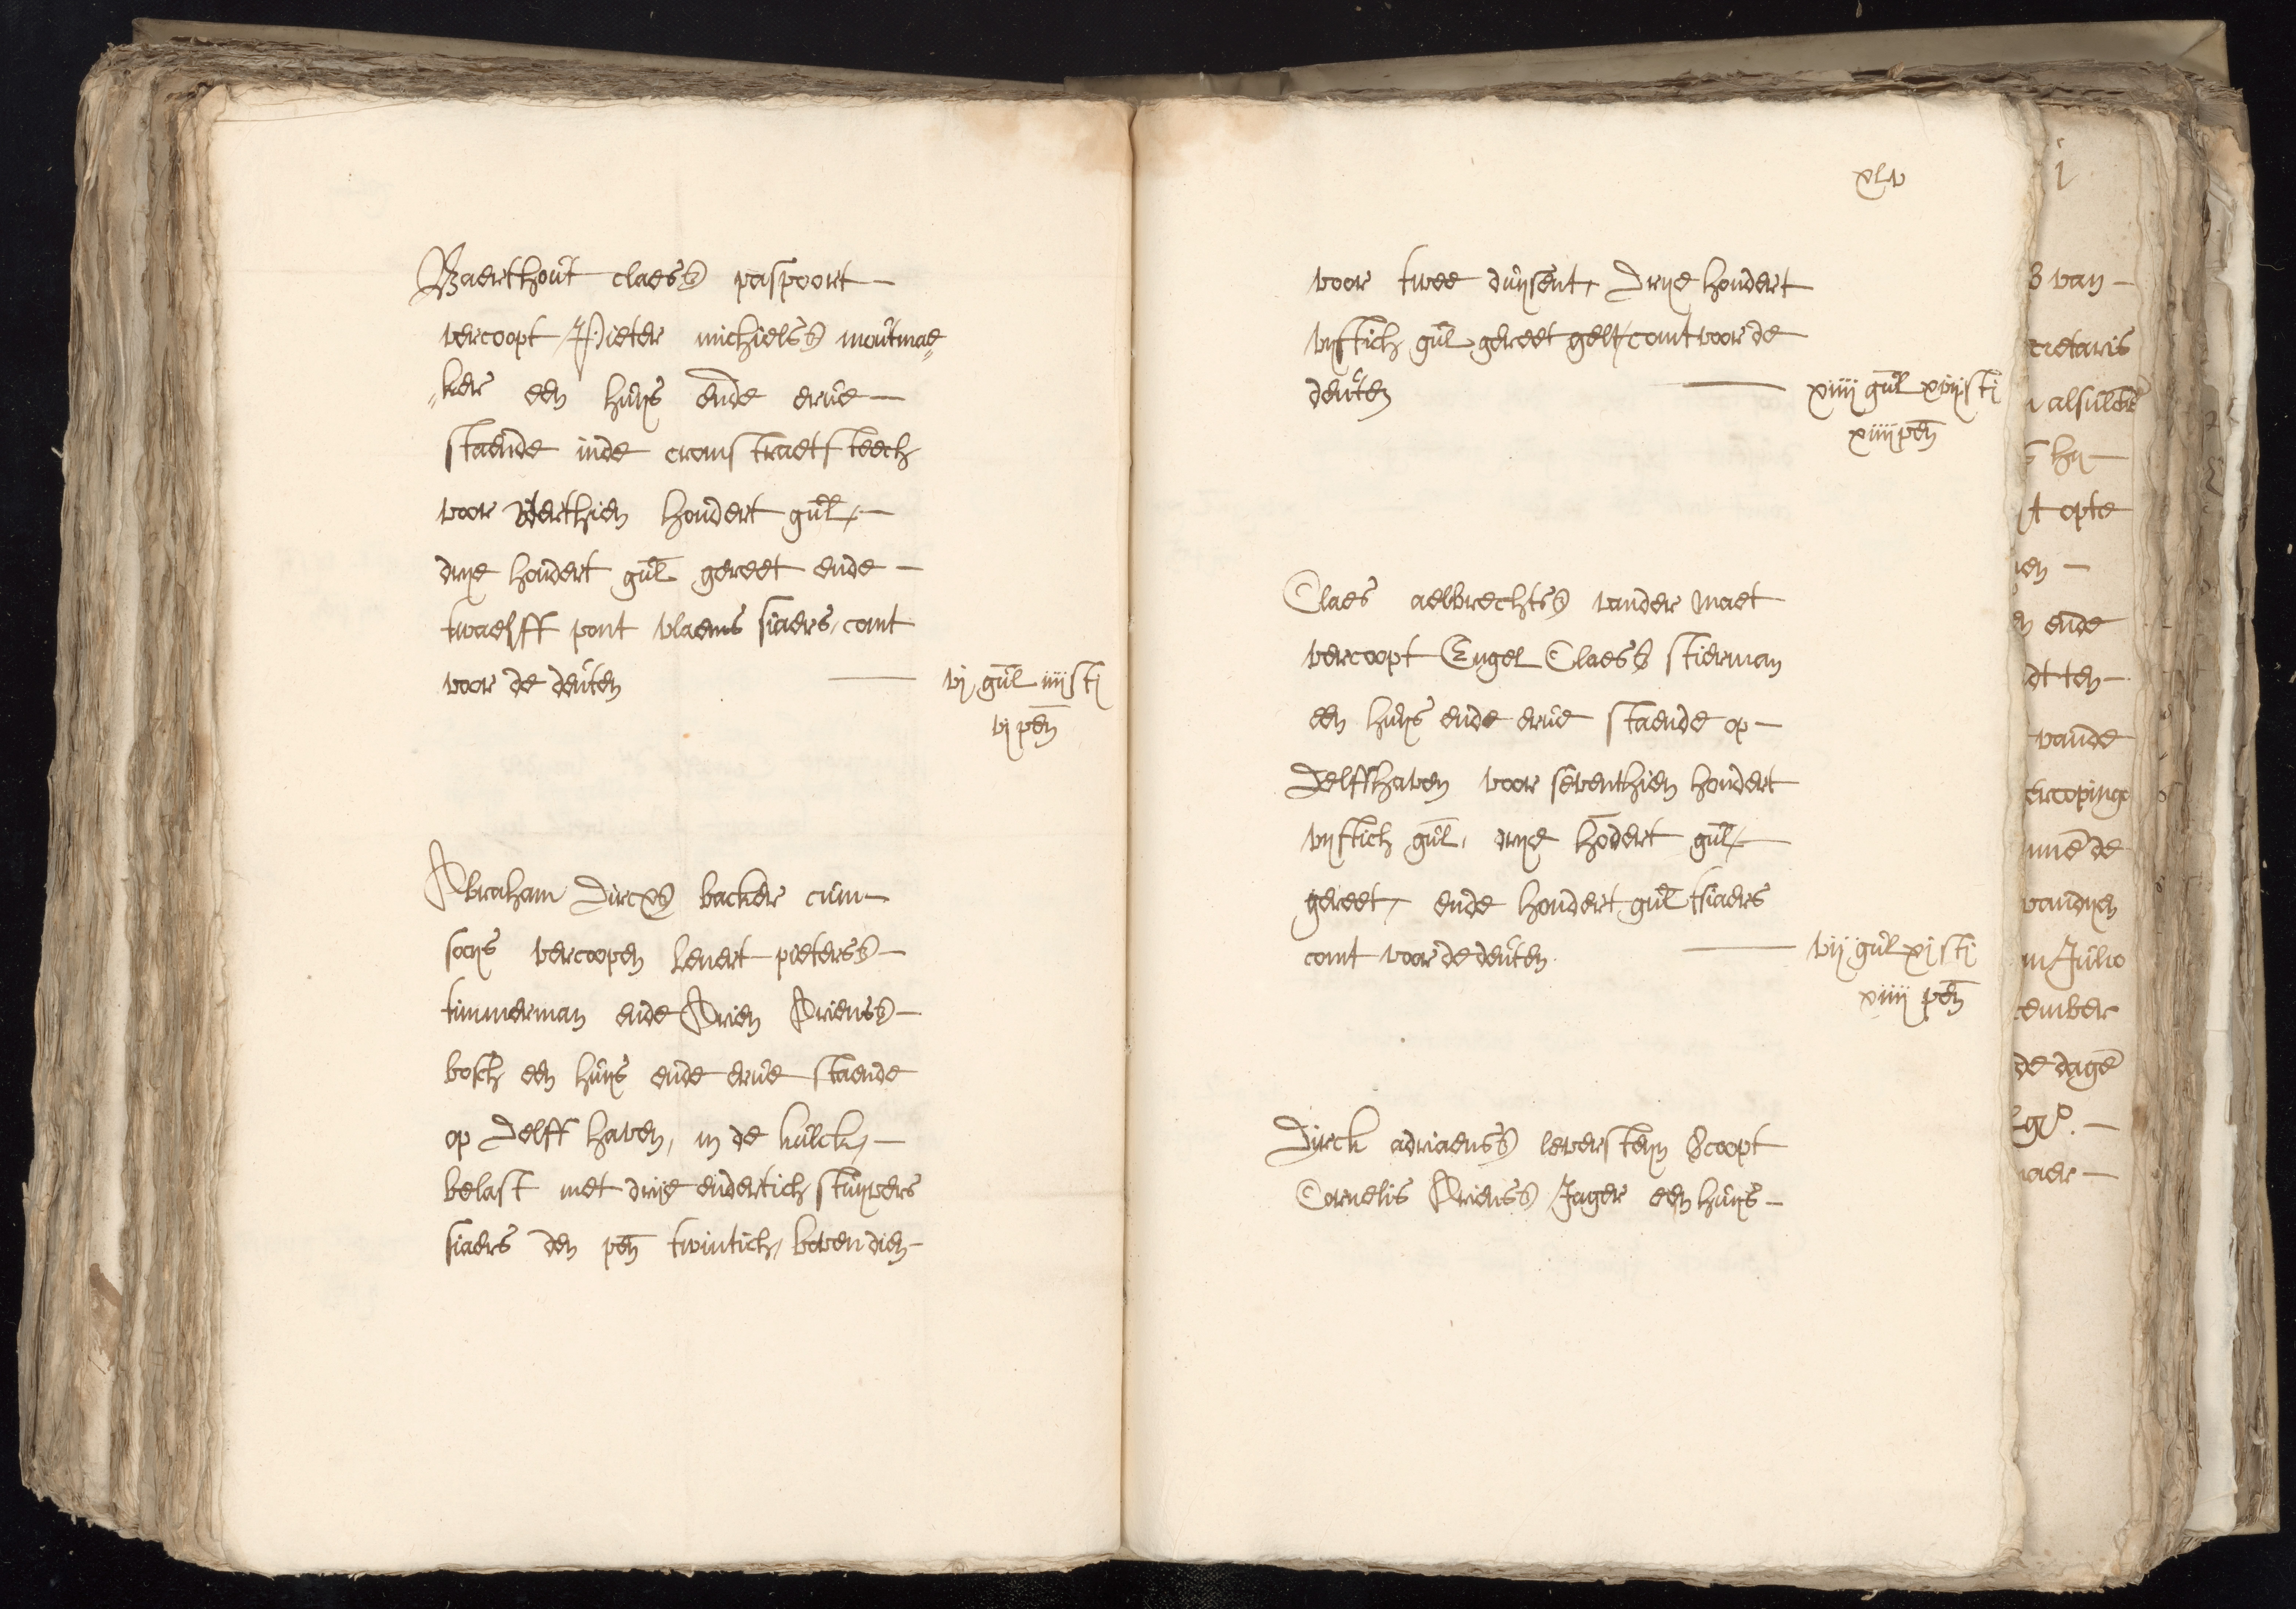 Baerthout claess paspoort
vercoopt Pieter michielss moutmae„
„ker een huijs ende erve
staende inde cromstraetsteech
voor veerthien hondert gul,
drije hondert gul gereet ende
twaelff pont vlaems siaers, comt
voor de deuten vj gul iiij sti
vj pen
Abraham Dircxs backer cum
socijs vercoopen Lenert pieterss
timmerman ende Arien Arienss
bosch een huijs ende erve staende
op Delff haven, in de kulck,
belast met drije endertich stuyvers
siaers den pen twintich, boven dien
xlv
voor twee duijsent, Drije hondert
vijftich gul gereet gelt, comt voor de
deuten xiiij gul xviij sti
xiiij pen
Claes aelbrechtss vander maet
vercoopt Engel Claess stierman
een huijs ende erve staende op
Delffhaven voor seventhien hondert
vijftich gul, drije hodert gul,
gereet, ende hondert gul tsiaers
comt voor de deuten vij gul xj sti
xiiij pen
Dirck adriaenss leversteijn vcoopt
Cornelis Arienss Jager een huijs
j
van
cretaris
alsulcke
hij
opte
ende
dt ten
vande
ercoping
de
vandijen
in Julio
ember
de dage